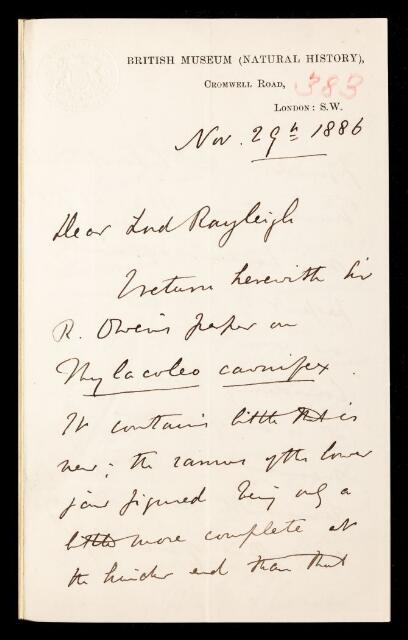 BRITISH MUSEUM (NATURAL HISTORY),
CROMWELL ROAD, 383
LONDON: S.W.
Nov. 29th 1886
Dear Lord Rayleigh
I return herewith Sir
R. Owen's paper on
Thylacoleo carnifex.
It contains little that is
new; the ramus of the lower
jaw figured being only a
little more complete at
the hinder end than that